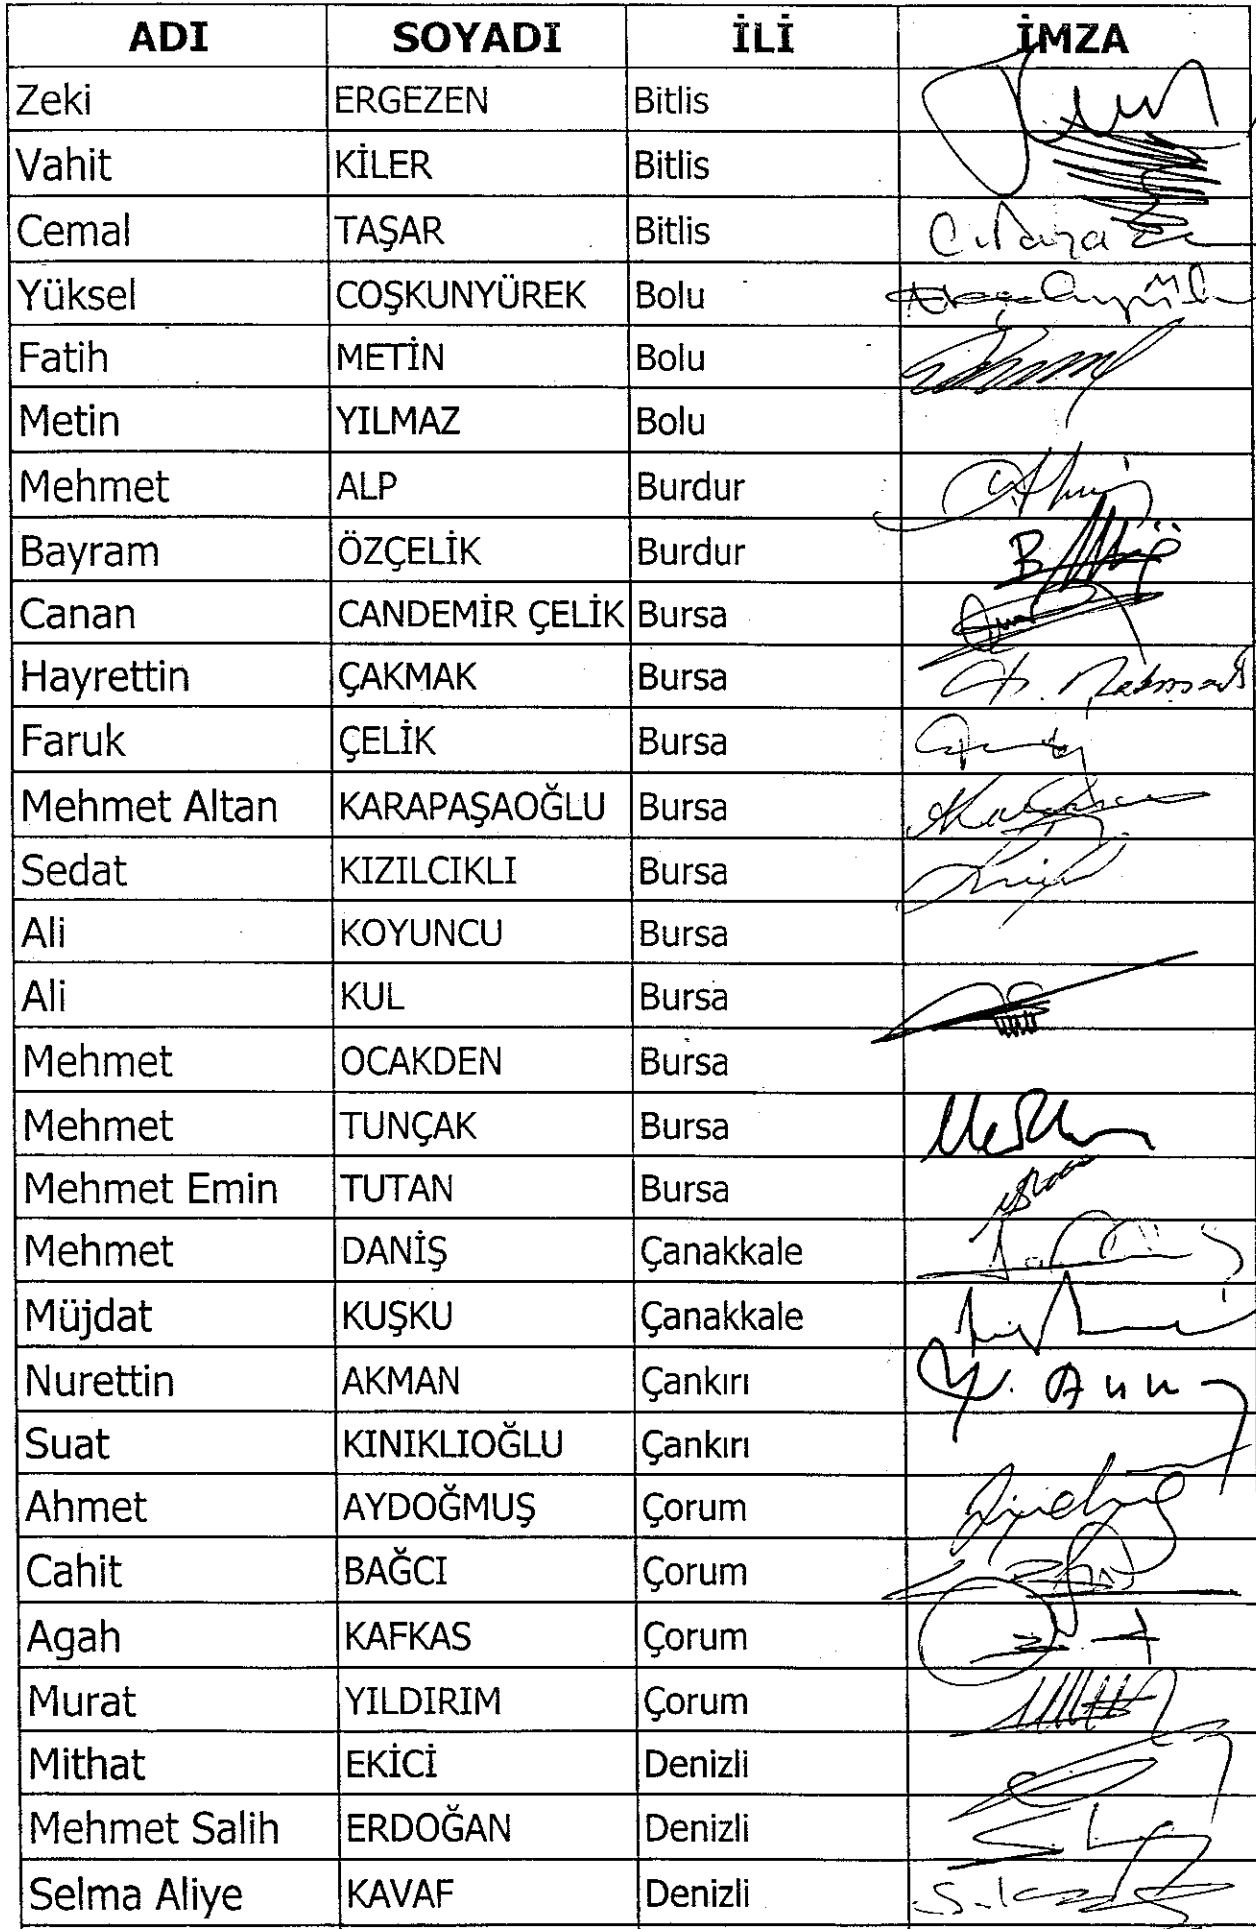 ADI SOYADI İLİ İMZA
Zeki ERGEZEN Bitlis
Vahit KİLER Bitlis
Cemal TAŞAR Bitlis
Yüksel COŞKUNYÜREK Bolu
Fatih METİN Bolu
Metin YILMAZ Bolu
Mehmet ALP Burdur
Bayram ÖZÇELİK Burdur
Canan CANDEMİR ÇELİK Bursa
Hayrettin ÇAKMAK Bursa
Faruk ÇELİK Bursa
Mehmet Altan KARAPAŞAOĞLU Bursa
Sedat KIZILCIKLI Bursa
Ali KOYUNCU Bursa
Ali KUL Bursa
Mehmet OCAKDEN Bursa
Mehmet TUNÇAK Bursa
Mehmet Emin TUTAN Bursa
Mehmet DANİŞ Çanakkale
Müjdat KUŞKU Çanakkale
Nurettin AKMAN Çankırı
Suat KINIKLIOĞLU Çankırı
Ahmet AYDOĞMUŞ Çorum
Cahit BAĞCI Çorum
Agah KAFKAS Çorum
Murat YILDIRIM Çorum
Mithat EKİCİ Denizli
Mehmet Salih ERDOĞAN Denizli
Selma Aliye KAVAF Denizli